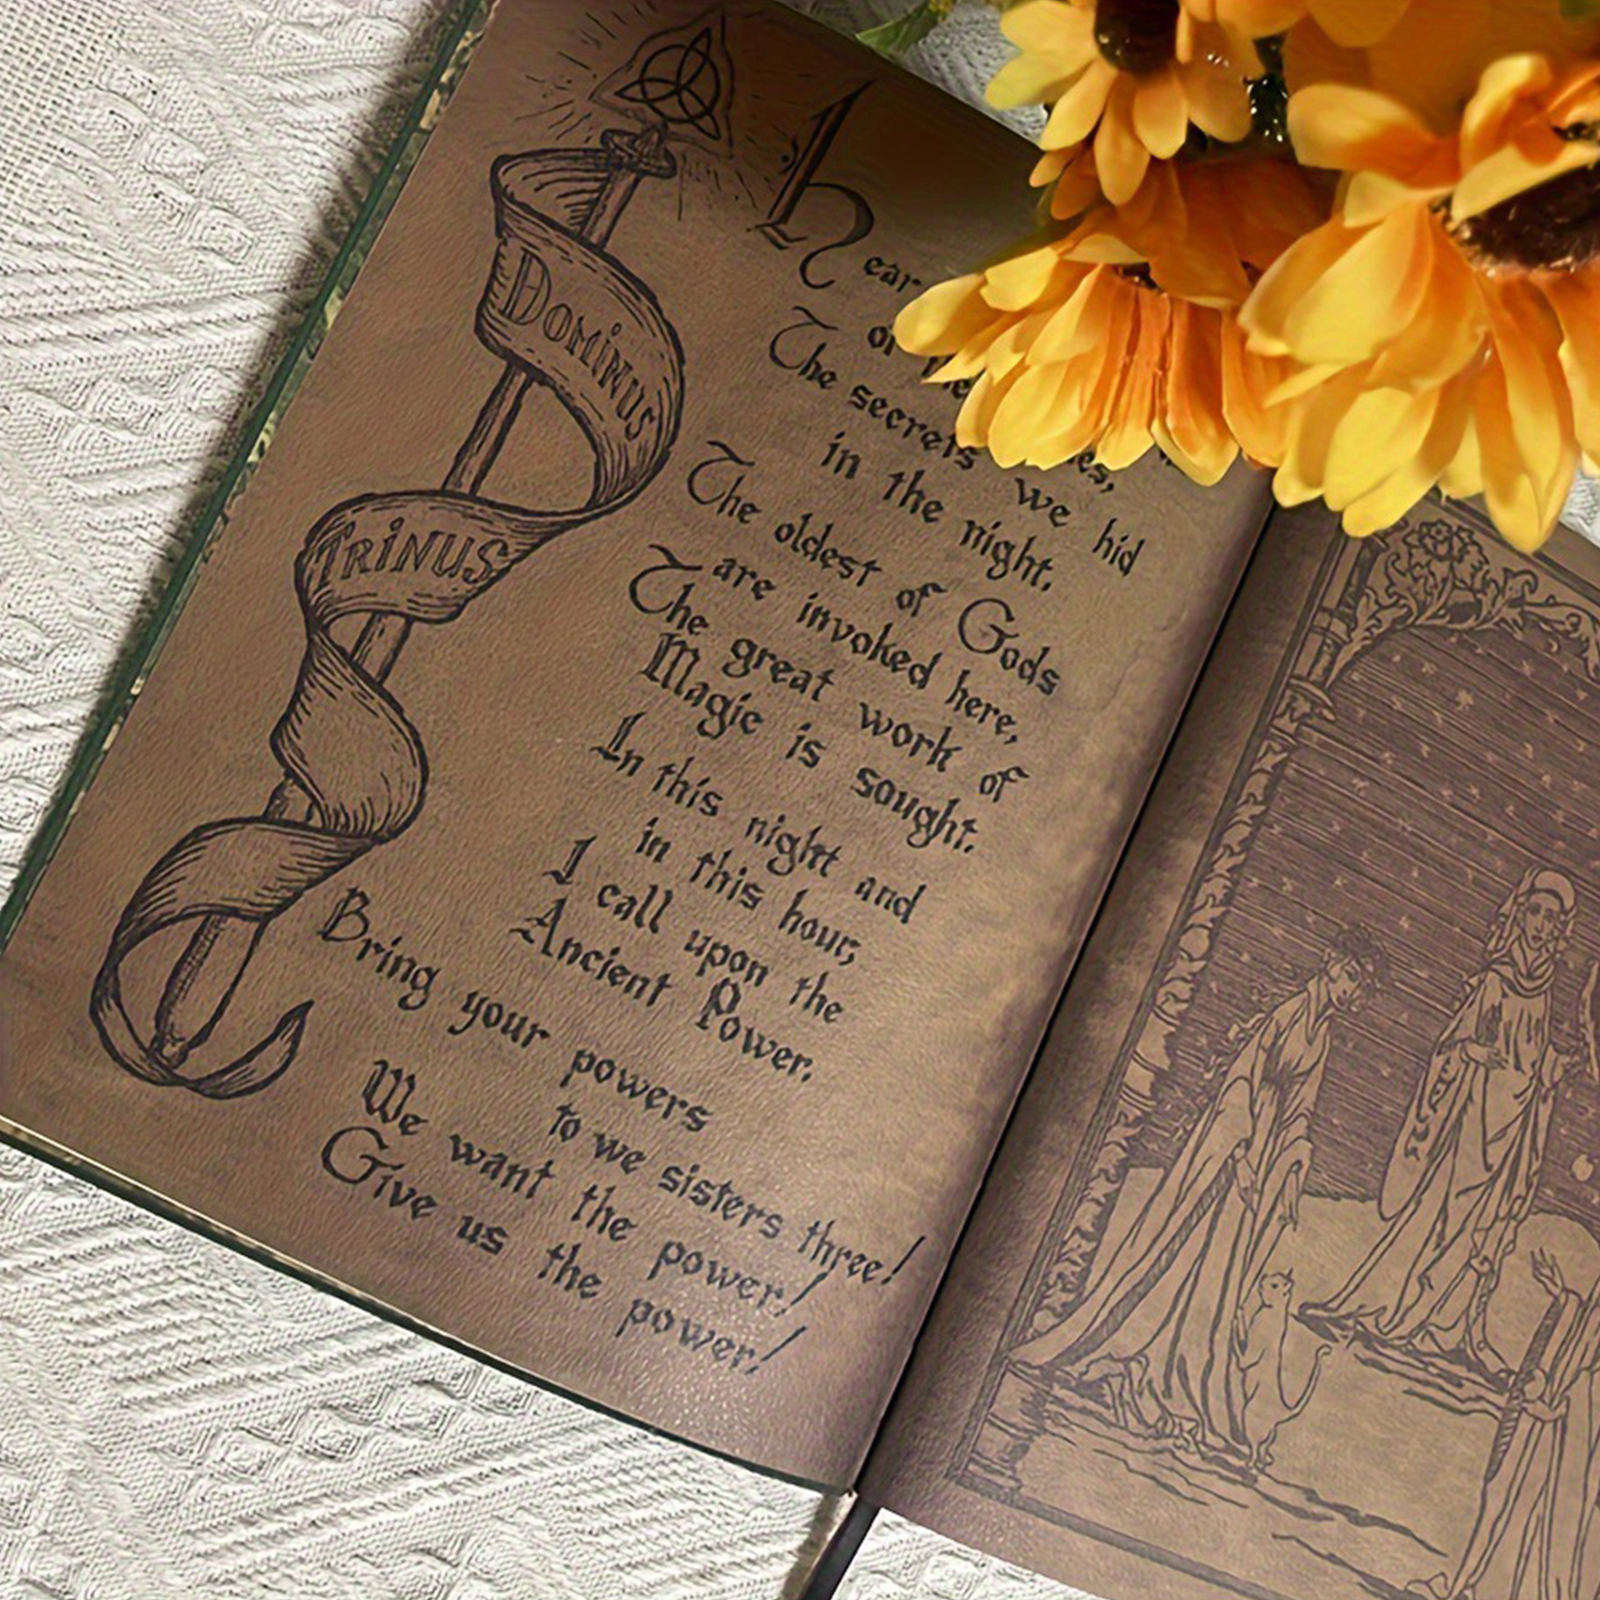 Dominus
Trinus
Hear
The secrets we hid
in the night,
The oldest of Gods
are invoked here,
The great work of
Magic is sought.
In this night and
in this hour,
I call upon the
Ancient Power.
Bring your powers
to we sisters three!
We want the power!
Give us the power!